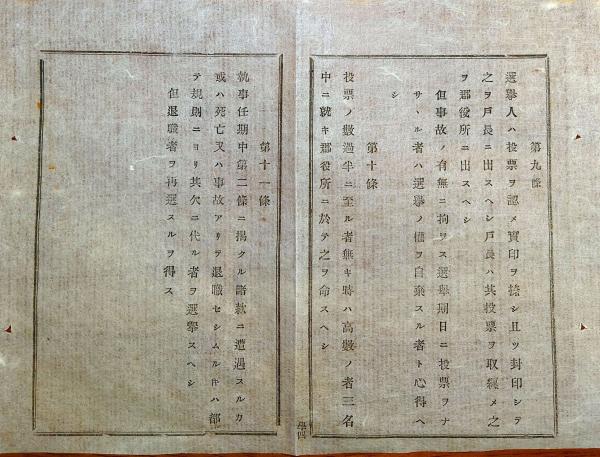 第九條
選擧人ハ投票ヲ認メ實印ヲ捺シ且ツ封印シテ
之ヲ戸長ニ出スヘシ戸長ハ其投票ヲ取纒メ之
ヲ郡役所ニ出スヘシ
但事故ノ有無ニ拘ヲス選擧期日ニ投票ヲナ
サヽル者ハ選擧ノ權ヲ自棄スル者ト心得ヘ
シ
第十條
投票ノ數過半ニ至ル者無キ時ハ高數ノ者三名
中ニ就キ郡役所ニ於テ之ヲ命スヘシ
學四
第十一條
執事任期中第二條ニ揭クル諸款ニ遭遇スルカ
或ハ死亡又ハ事故アリテ退職セシムル𪜈ハ都
テ規則ニヨリ其欠ニ代ル者ヲ選擧スヘシ
但退職者ヲ再選スルヲ得ス